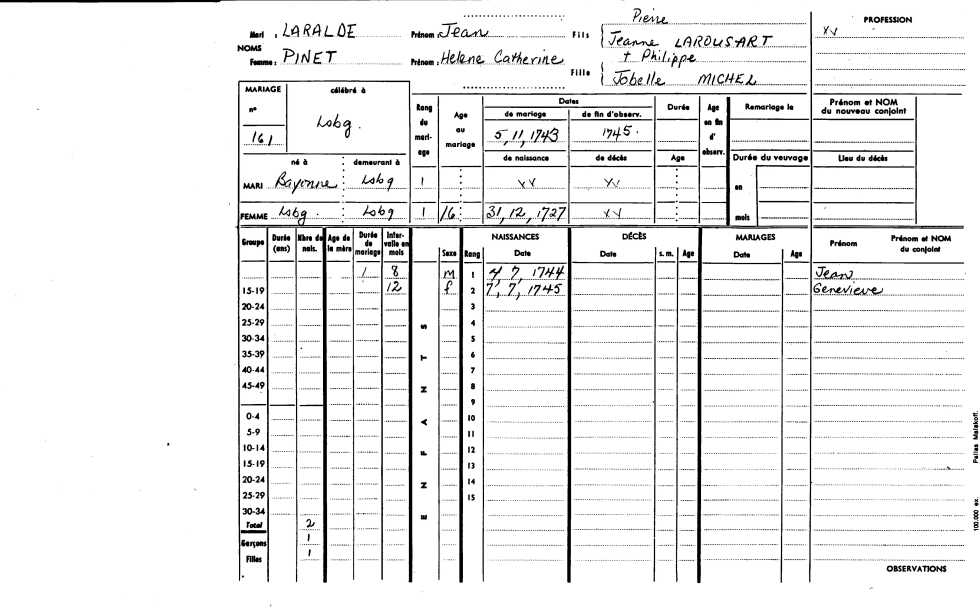 Pierre PROFESSION
Mari : LARALDE Prénom : Jean Fils Jeanne LAROUSART XV
NOMS + Philippe
Femme : PINET Prénom : Helene Catherine Fille Jobelle MICHEL
MARIAGE célébré à Rang du mariage Age au mariage Dates Durée Age en fin d'observ. Remariage le Prénom et NOM du nouveau conjoint
n° de mariage de fin d'observ.
161 Lsbg. 5, 11, 1743 1745.
né à demeurant à de naissance de décès Age Durée du veuvage Lieu du décès
MARI Bayonne Lsbg 1 XV XV en
FEMME Lsbg. Lsbg 1 16 31, 12, 1727 XV mois
Groupe Durée (ans) Nbre de nais. Age de la mère Durée de mariage Intervalle en mois Sexe Rang NAISSANCES Date DÉCÈS Date s. m. Age MARIAGES Date Age Prénom Prénom et NOM du conjoint
1 8 M 1 4 7, 1744 Jean
15-19 12 f 2 7, 7, 1745 Genevieve
20-24 3
25-29 S 4
30-34 5
35-39 T 6
40-44 7
45-49 N 8
9
0-4 A 10
5-9 11
10-14 F 12
15-19 13
20-24 N 14
25-29 15
30-34 E
Total 2
Garçons 1
Filles 1
OBSERVATIONS
100.000 ex. Pallas Malakoff.